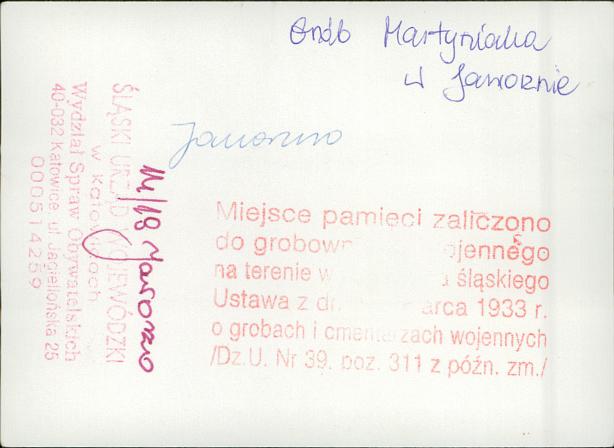 Grób Martyniaka
w Jaworznie
Jaworzno
Miejsce pamięci zaliczono
do grobown ojennego
na terenie w śląskiego
Ustawa z dn. arca 1933 r.
o grobach i cmentarzach wojennych
/Dz.U. Nr 39. poz. 311 z późn. zm./
ŚLĄSKI URZĄD WOJEWÓDZKI
w Katowicach
Wydział Spraw Obywatelskich
40-032 Katowice, ul. Jagiellońska 25
000514259
Jaworzno